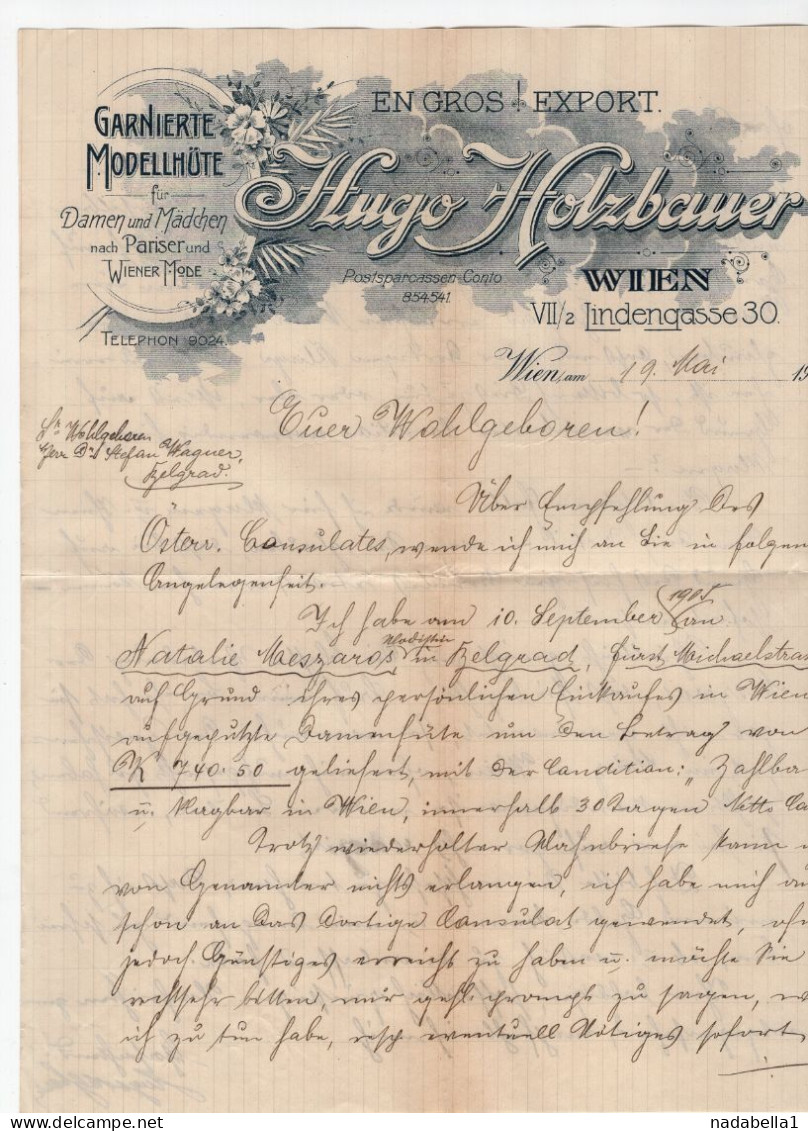 GARNIERTE
MODELLHÜTE
für
Damen und Mädchen
nach Pariser und
WIENER MODE
TELEPHON 9024.
EN GROS EXPORT.
Hugo Holzbauer
Postsparcassen-Conto
854.541.
WIEN
VII/2 Lindengasse 30.
Wien, am 19. Mai 19
Sr Wohlgeboren
Herr Dr Stefan Wagner,
Belgrad.
Euer Wohlgeboren!
Über Empfehlung des
Österr. Consulates, wende ich mich an Sie in folgen
Angelegenheit.
Ich habe am 10. September 1905 an
Natalie Meszaros Modistin in Belgrad, Fürst Michaelstras
auf Grund ihres persönlichen Einkaufes in Wien
aufgeputzte Damenhüte um den Betrag von
K 740.50 geliefert, mit der Condition: "Zahlba
u. klagbar in Wien, innerhalb 30 Tagen Netto Ca
Trotz wiederholter Mahnbriefe kann
von Genannter nichts erlangen, ich habe mich au
schon an das dortige Consulat gewendet, ohn
jedoch Günstiges erreicht zu haben u. möchte Sie
recht sehr bitten, mir gefl. prompt zu sagen, w
ich zu tun habe, resp. eventuell Nötiges sofort
www.delcampe.net
nadabella1